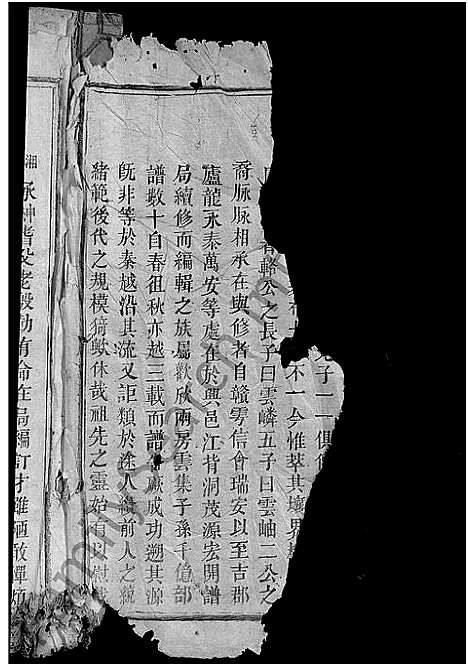 兄子一一俱
不一今惟萃其壤界
輅公之長子曰雲嶙五子曰雲岫二公之
裔脉脉相承在與修者自贛雩信會瑞安以至吉郡
廬龍永泰萬安等處在於興邑江背洞茂源宏開譜
局續修而編輯之族屬歡欣兩房雲集子孫千億部
譜数十自春徂秋亦越三載而譜厥成功遡其源
旣非等於秦越沿其流又詎類於途人纘前人之
緒範後代之規模猗歟休哉祖先之靈始有以慰哉
湘
承紳耆父老殷勤有侖在局編訂才雖陋敢憚煩